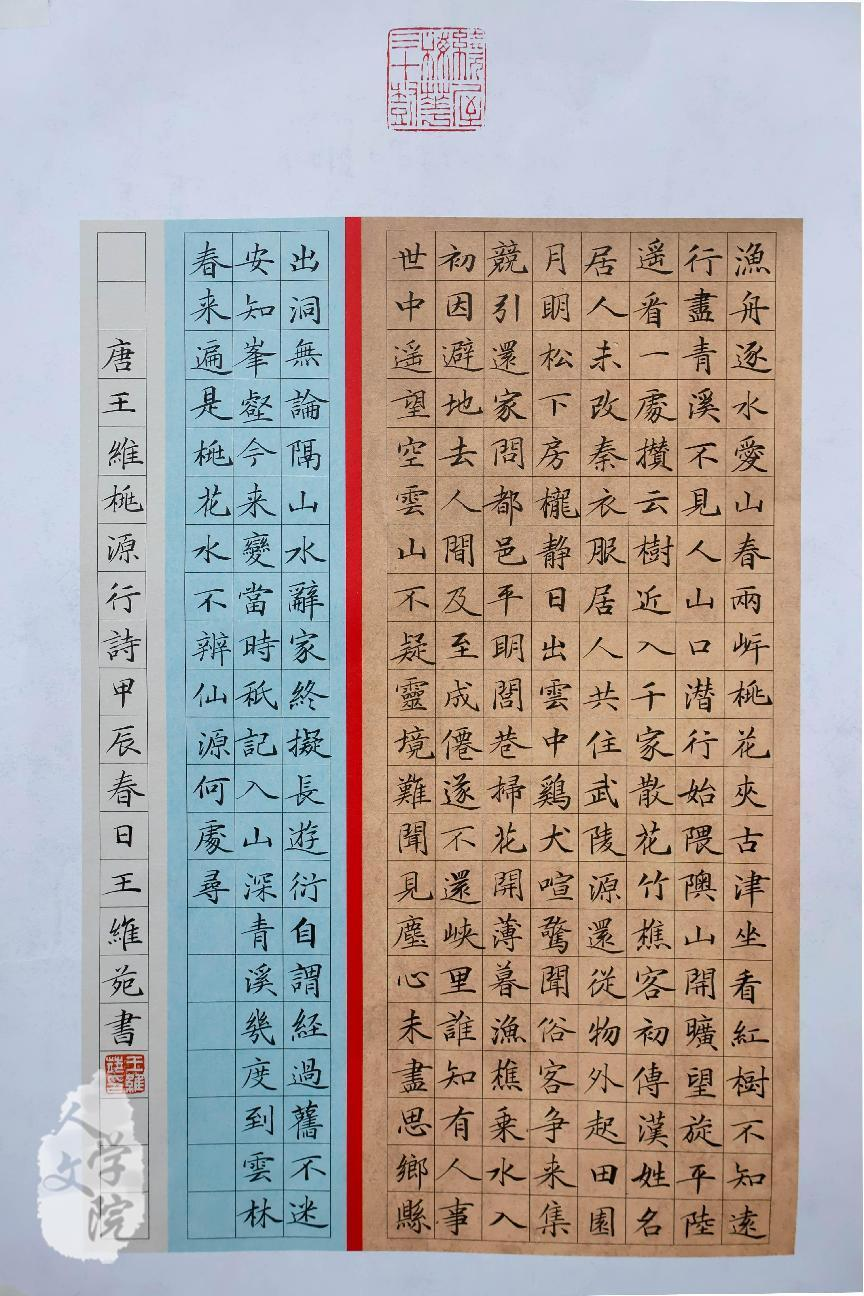 繞屋梅華三十樹
漁舟逐水愛山春兩岸桃花夾古津坐看紅樹不知遠
行盡青溪不見人山口潜行始隈隩山開曠望旋平陸
遥看一處攢云樹近入千家散花竹樵客初傳漢姓名
居人未改秦衣服居人共住武陵源還從物外起田園
月明松下房櫳静日出雲中鷄犬喧驚聞俗客争来集
競引還家問都邑平明閭巷掃花開薄暮漁樵乗水入
初因避地去人間及至成僊遂不還峡里誰知有人事
世中遥望空雲山不疑靈境難聞見塵心未盡思鄉縣
出洞無論隔山水辭家終擬長遊衍自謂経過舊不迷
安知峯壑今来變當時秖記入山深青溪幾度到雲林
春来遍是桃花水不辨仙源何處尋
唐王維桃源行詩甲辰春日王維苑書
王維苑印
人文学院